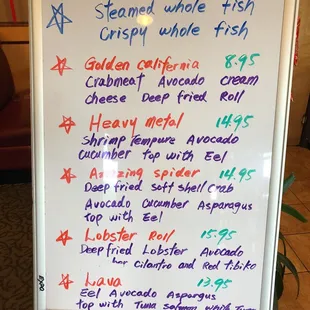 Steamed whole fish
Crispy whole fish
Golden california 8.95
Crabmeat Avocado cream
cheese Deep fried Roll
Heavy metal 14.95
Shrimp Tempure Avocado
cucumber top with Eel
Amazing spider 14.95
Deep fried soft shell crab
Avocado cucumber Asparagus
top with Eel
Lobster Roll 15.95
Deep fried Lobster Avocado
cilantro and Red Tibiko
Lava 13.95
Eel Avocado Aspargus
top with Tuna Salmon white Tuna